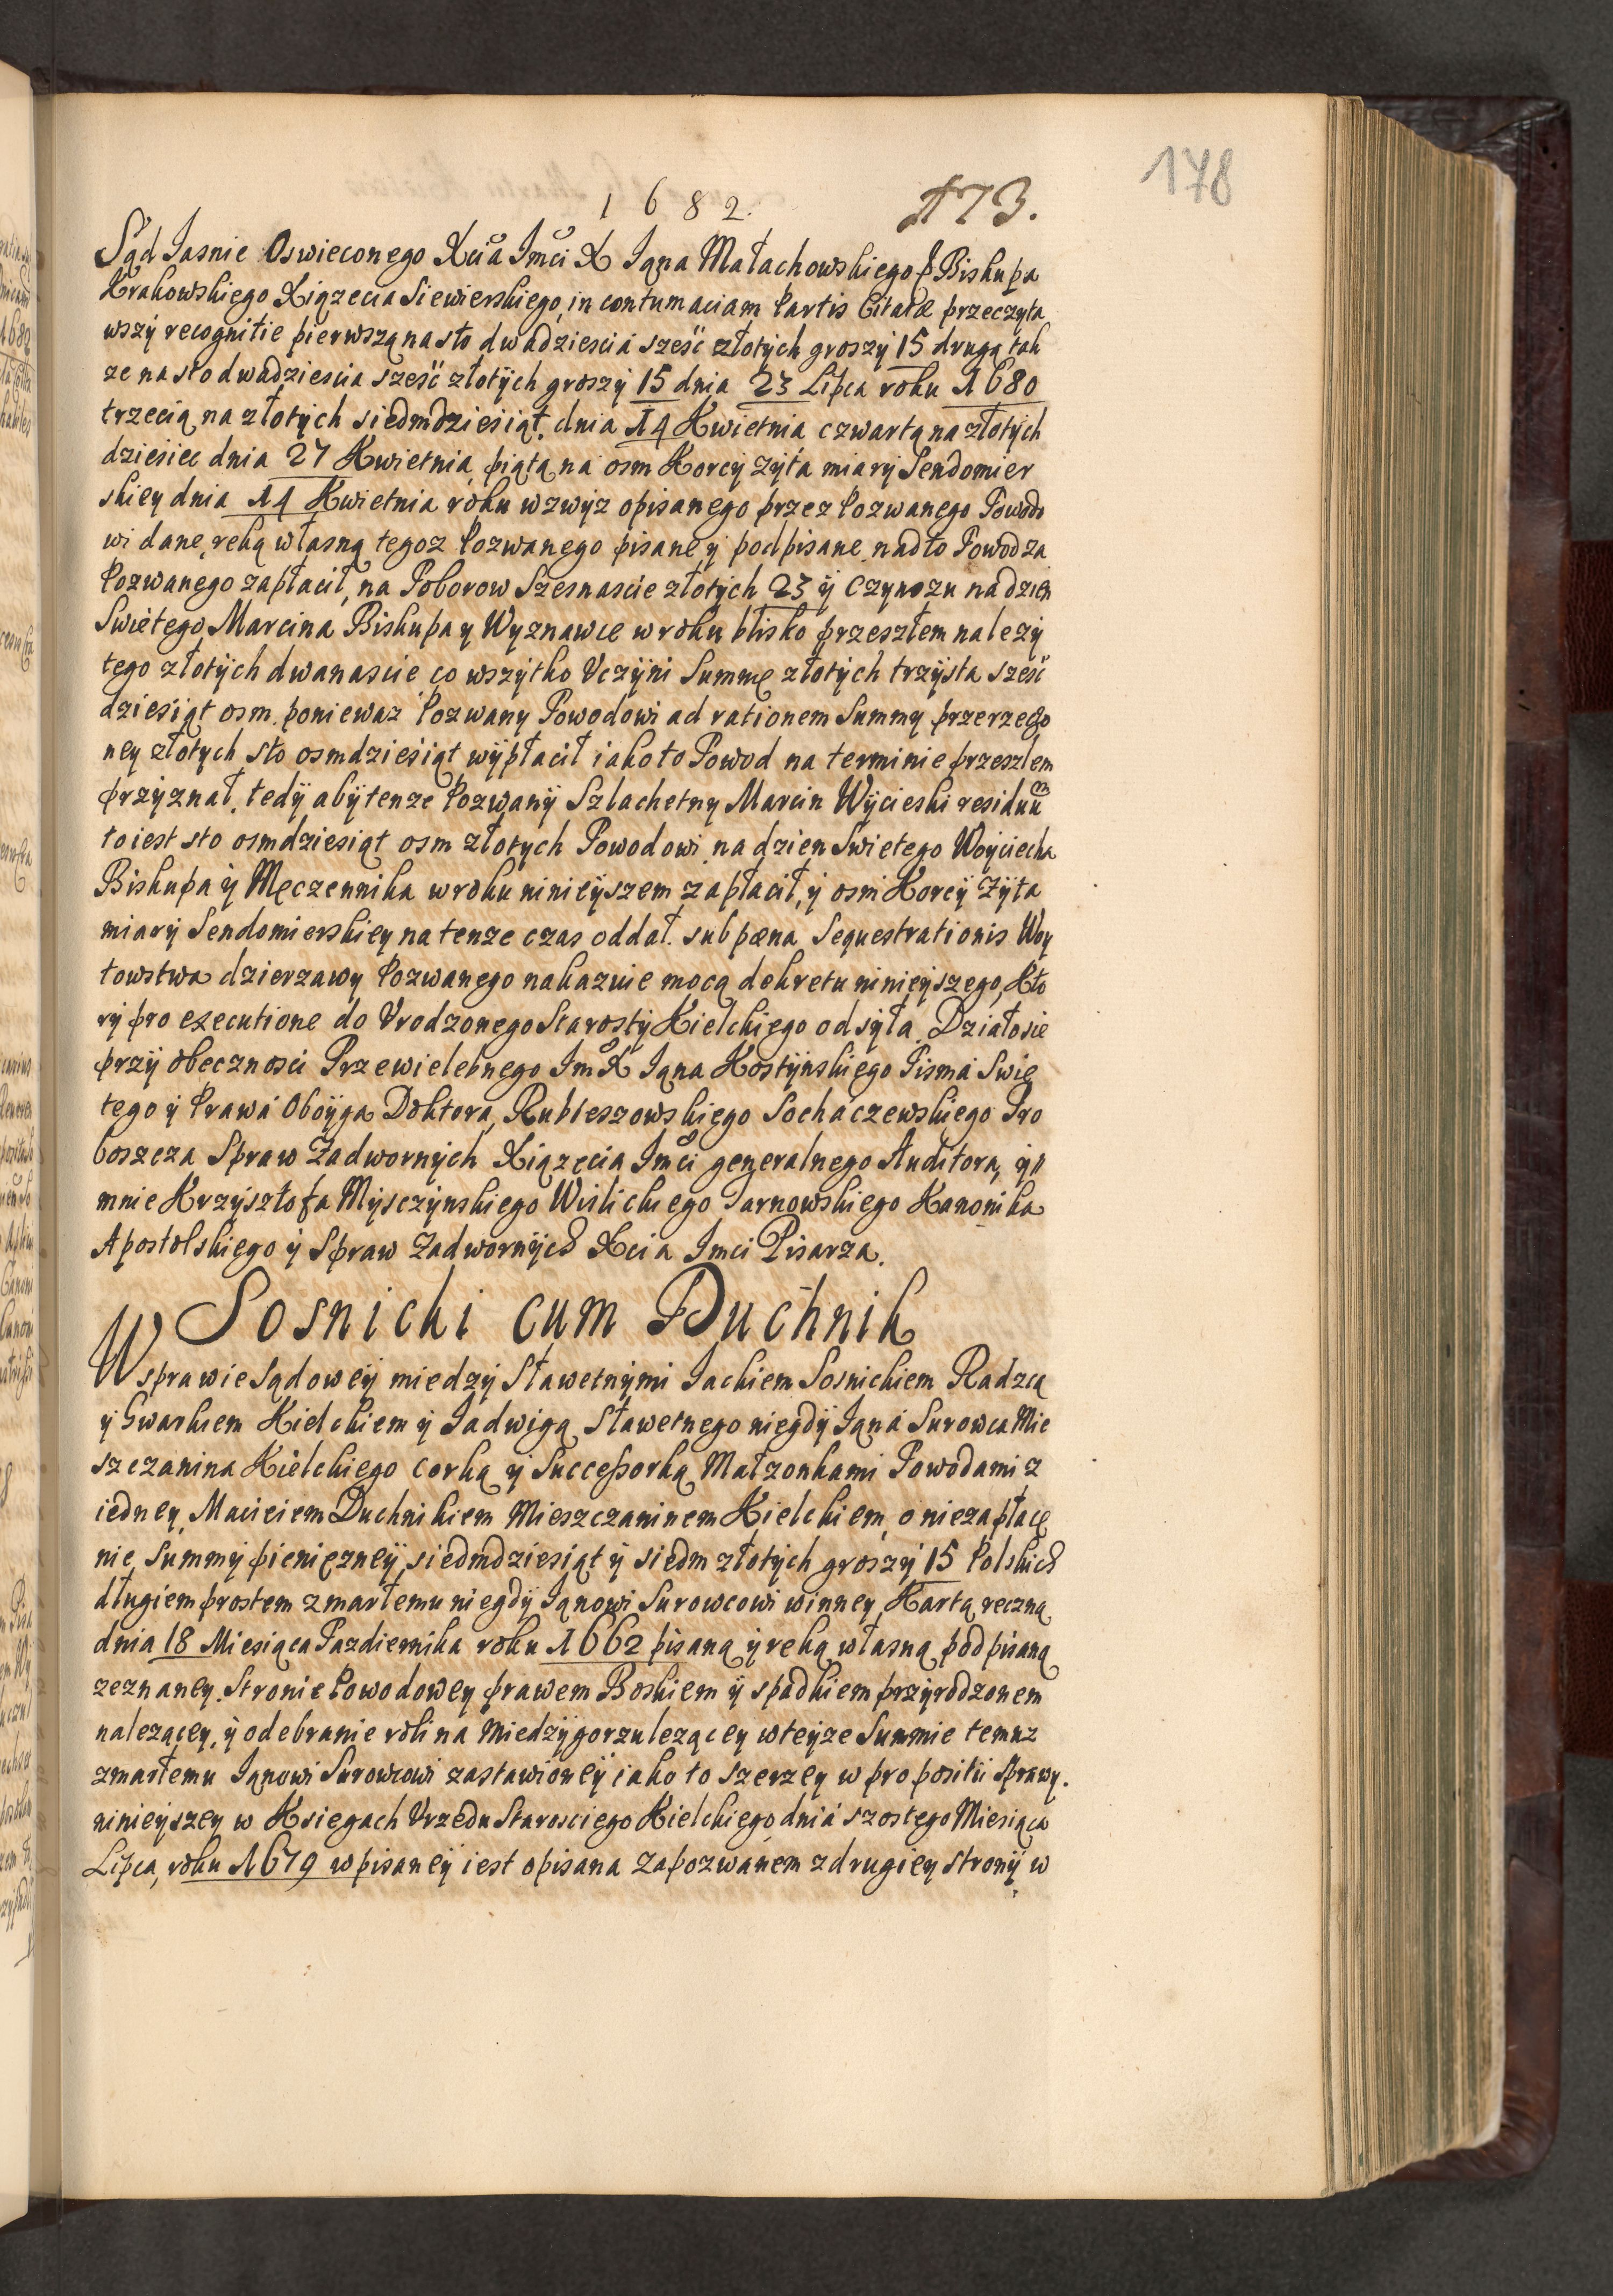 178
1682.
173.
Sąd Iasnie Oswieconego Xcia Imci X Iana Małachowskiego Biskupa
Krakowskiego Xiązecia Siewierskiego, in contumaciam Partis Citatæ przeczyta
wszÿ recognitie pierwszą na sto dwadziescia szesć złotych groszy 15 drugą tak
ze na sto dwadziescia szesć złotÿch groszÿ 15 dnia 23 Lipca roku 1680
trzecią na złotych siedmdziesiąt, dnia 14 Kwietnia czwartą na złotych
dziesiec dnia 27 Kwietnia, piątą na osm Korcÿ zÿta miarÿ Sendomier
skiey dnia 14 Kwietnia roku wzwÿz opisanego przez Pozwanego Powodo
wi dane, reką własną tegoz Pozwanego pisane ÿ podpisane nadto Powod za
Pozwanego zapłacił, na Poborow Szesnascie złotych 23 ÿ Czynszu na dzien
Swietego Marcina Biskupa y Wyznawce w roku blisko przeszłem nalezÿ
tego złotÿch dwanascie, co wszÿtko Vczÿni Summę złotych trzÿsta szesć
dziesiąt osm. poniewaz Pozwany Powodowi ad rationem Summy przerzeczo
ney złotych sto osmdziesiąt wÿpłacił iako to Powod na terminie przeszłem
przÿznał. tedÿ abÿ tenze Pozwanÿ Szlachetny Marcin Wÿcieski residuum
to iest sto osmdziesiąt osm złotych Powodowi na dzien Swietego Woyciecha
Biskupa ÿ Męczennika w roku ninieÿszem zapłacił, ÿ osm Korcÿ Zÿta
miarÿ Sendomierskiey na tenze czas oddał. sub pæna Sequestrationis Woy
towstwa dzierzawy Pozwanego nakazuie mocą dekretu ninieÿszego, Kto
rÿ pro executione do Vrodzonego Starostÿ Kielckiego odsÿła. Działosie
przÿ obecznosci Przewielebnego Im X Iana Kostÿnskiego Pisma Swię
tego ÿ Prawa Oboÿga Doktora, Rubieszowskiego Sochaczewskiego Pro
boszcza Spraw Zadwornÿch Xiązęcia Imci generalnego Auditora, ÿ
mnie Krzÿsztofa Mÿsczÿnskiego Wislickiego Tarnowskiego Kanonika
Apostolskiego ÿ Spraw Zadwornÿch Xcia Imci Pisarza.
Sosnicki cum Duchnik
W sprawie Sądoweÿ miedzÿ Sławetnÿmi Iackiem Sosnickiem Radzcą
ÿ Gwarkiem Kielckiem ÿ Iadwigą Sławetnego niegdÿ Iana Surowca Mie
szczanina Kielckiego corką ÿ Successorką Małzonkami Powodami z
iedney, Macieiem Duchnikiem Mieszczaninem Kielckiem, o niezapłace
nie Summÿ pienięzneÿ, siedmdziesiąt ÿ siedm złotych groszÿ 15 Polskich
długiem prostem zmarłemu niegdÿ Ianowi Surowcowi winney, Kartą reczną
dnia 18 Miesiąca Pazdiernika roku 1662 pisaną ÿ reką własną podpisaną
zeznaney. Stronie Powodowey prawem Boskiem ÿ spadkiem przÿrodzonem
nalezącey, ÿ odebranie roli na Miedzÿgorzu lezącey w teÿze Summie temuz
zmarłemu Ianowi Surowcowi zastawioneÿ iako to szerzey w propositii Sprawy
ninieÿszey w Ksiegach Vrzedu Starosciego Kielckiego dnia szostego Miesiąca
Lipca, roku 1679 wpisaneÿ iest opisana Zapozwanem z drugiey stronÿ w